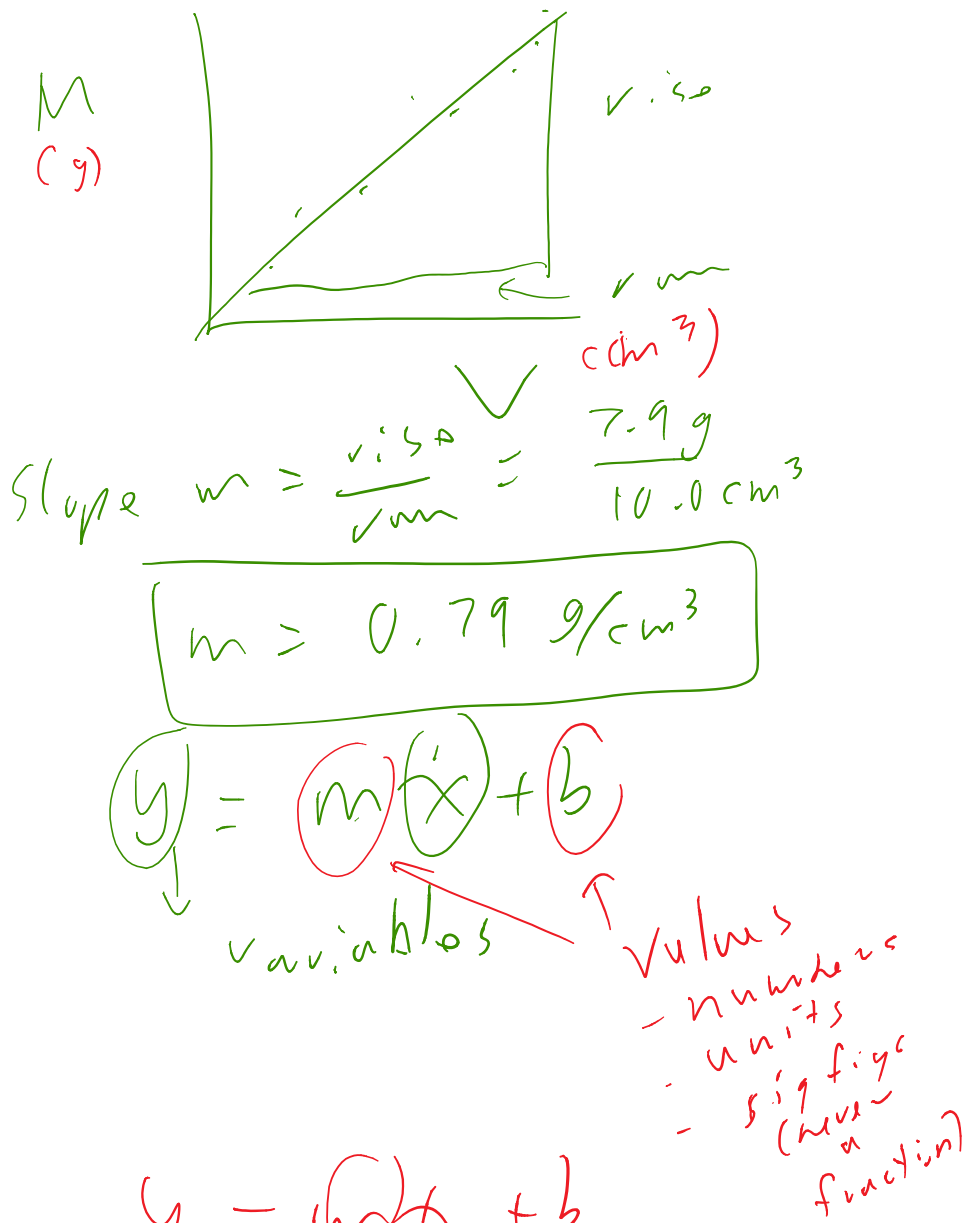 M
rise
(g)
run
(cm³)
V
slope m = rise/run = 7.9 g/10.0 cm³
m = 0.79 g/cm³
y = m x + b
variables
values
- numbers
- units
- sig figs
(never
a
fraction)
y = m x + b